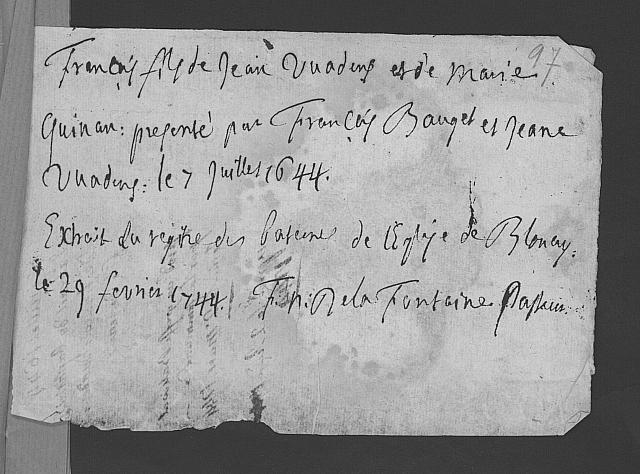 97
François fils de Jean Vuadens et de Marie
Guinan: presenté par François Bauget et Jeane
Vuadens: le 7 Juillet 1644.
Extrait du registre des batemes de l'Eglise de Blonay.
le 29 fevrier 1744. De la Fontaine Pasteur.